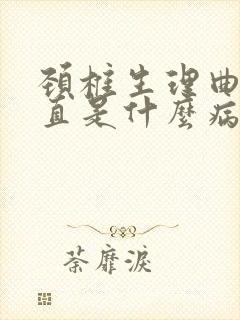 颈柱生理曲
直是什麼病
荼靡淚